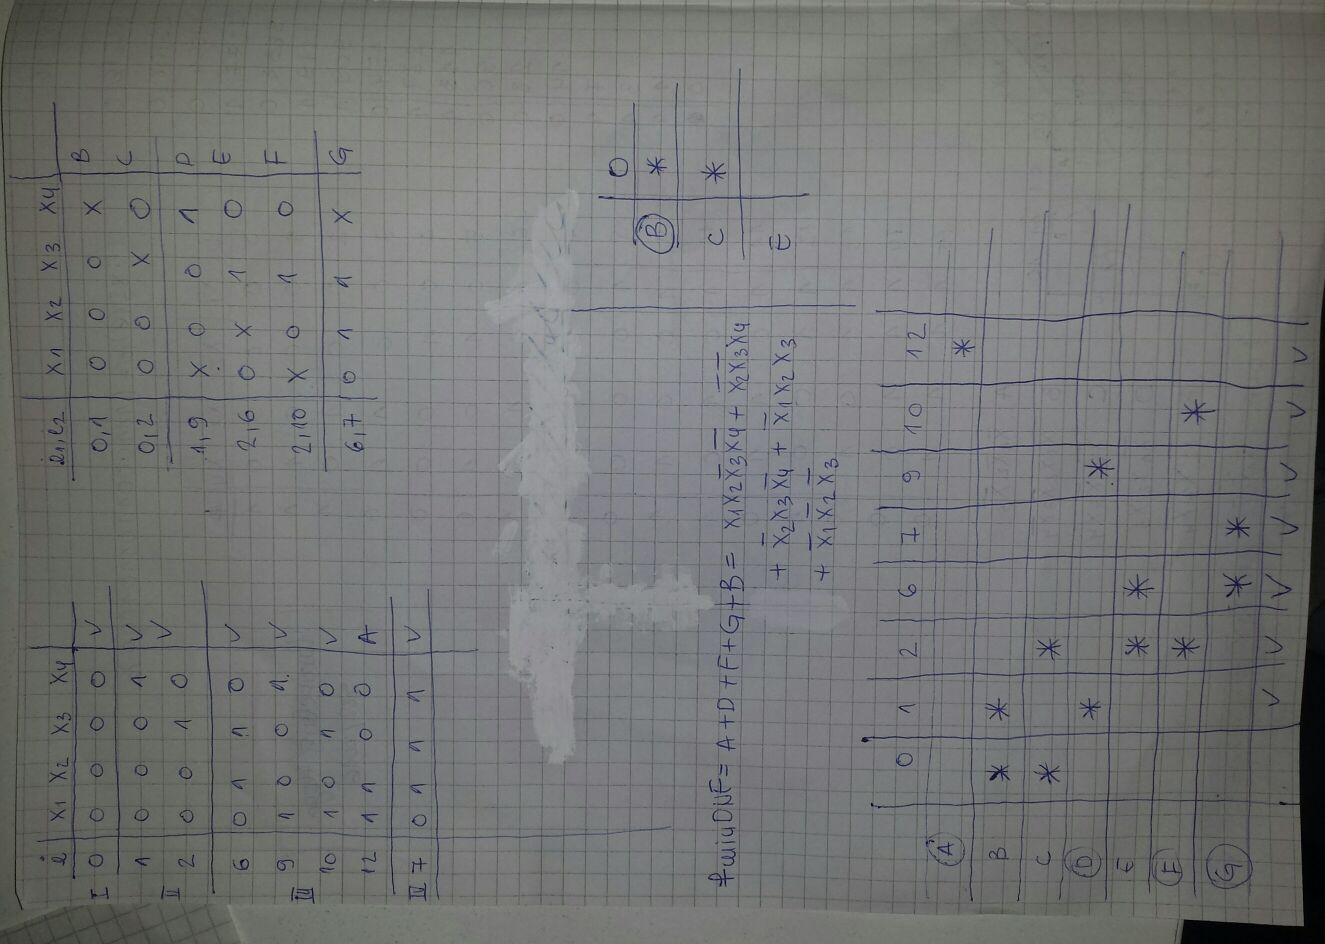 i X1 X2 X3 X4
I 0 0 0 0 0 V
1 0 0 0 1 V
II 2 0 0 1 0 V
6 0 1 1 0 V
9 1 0 0 1 V
III 10 1 0 1 0 V
12 1 1 0 0 A
IV 7 0 1 1 1 V
i1,i2 X1 X2 X3 X4
0,1 0 0 0 X B
0,2 0 0 X 0 C
1,9 X 0 0 1 D
2,6 0 X 1 0 E
2,10 X 0 1 0 F
6,7 0 1 1 X G
fminDNF = A+D+F+G+B = x1x2x̅3x̅4 + x̅2x̅3x4
+ x̅2x3x̅4 + x̅1x2x3
+ x̅1x̅2x̅3
0
B *
C *
E
0 1 2 6 7 9 10 12
A *
B * *
C * *
D * *
E * *
F * *
G * *
V V V V V V V